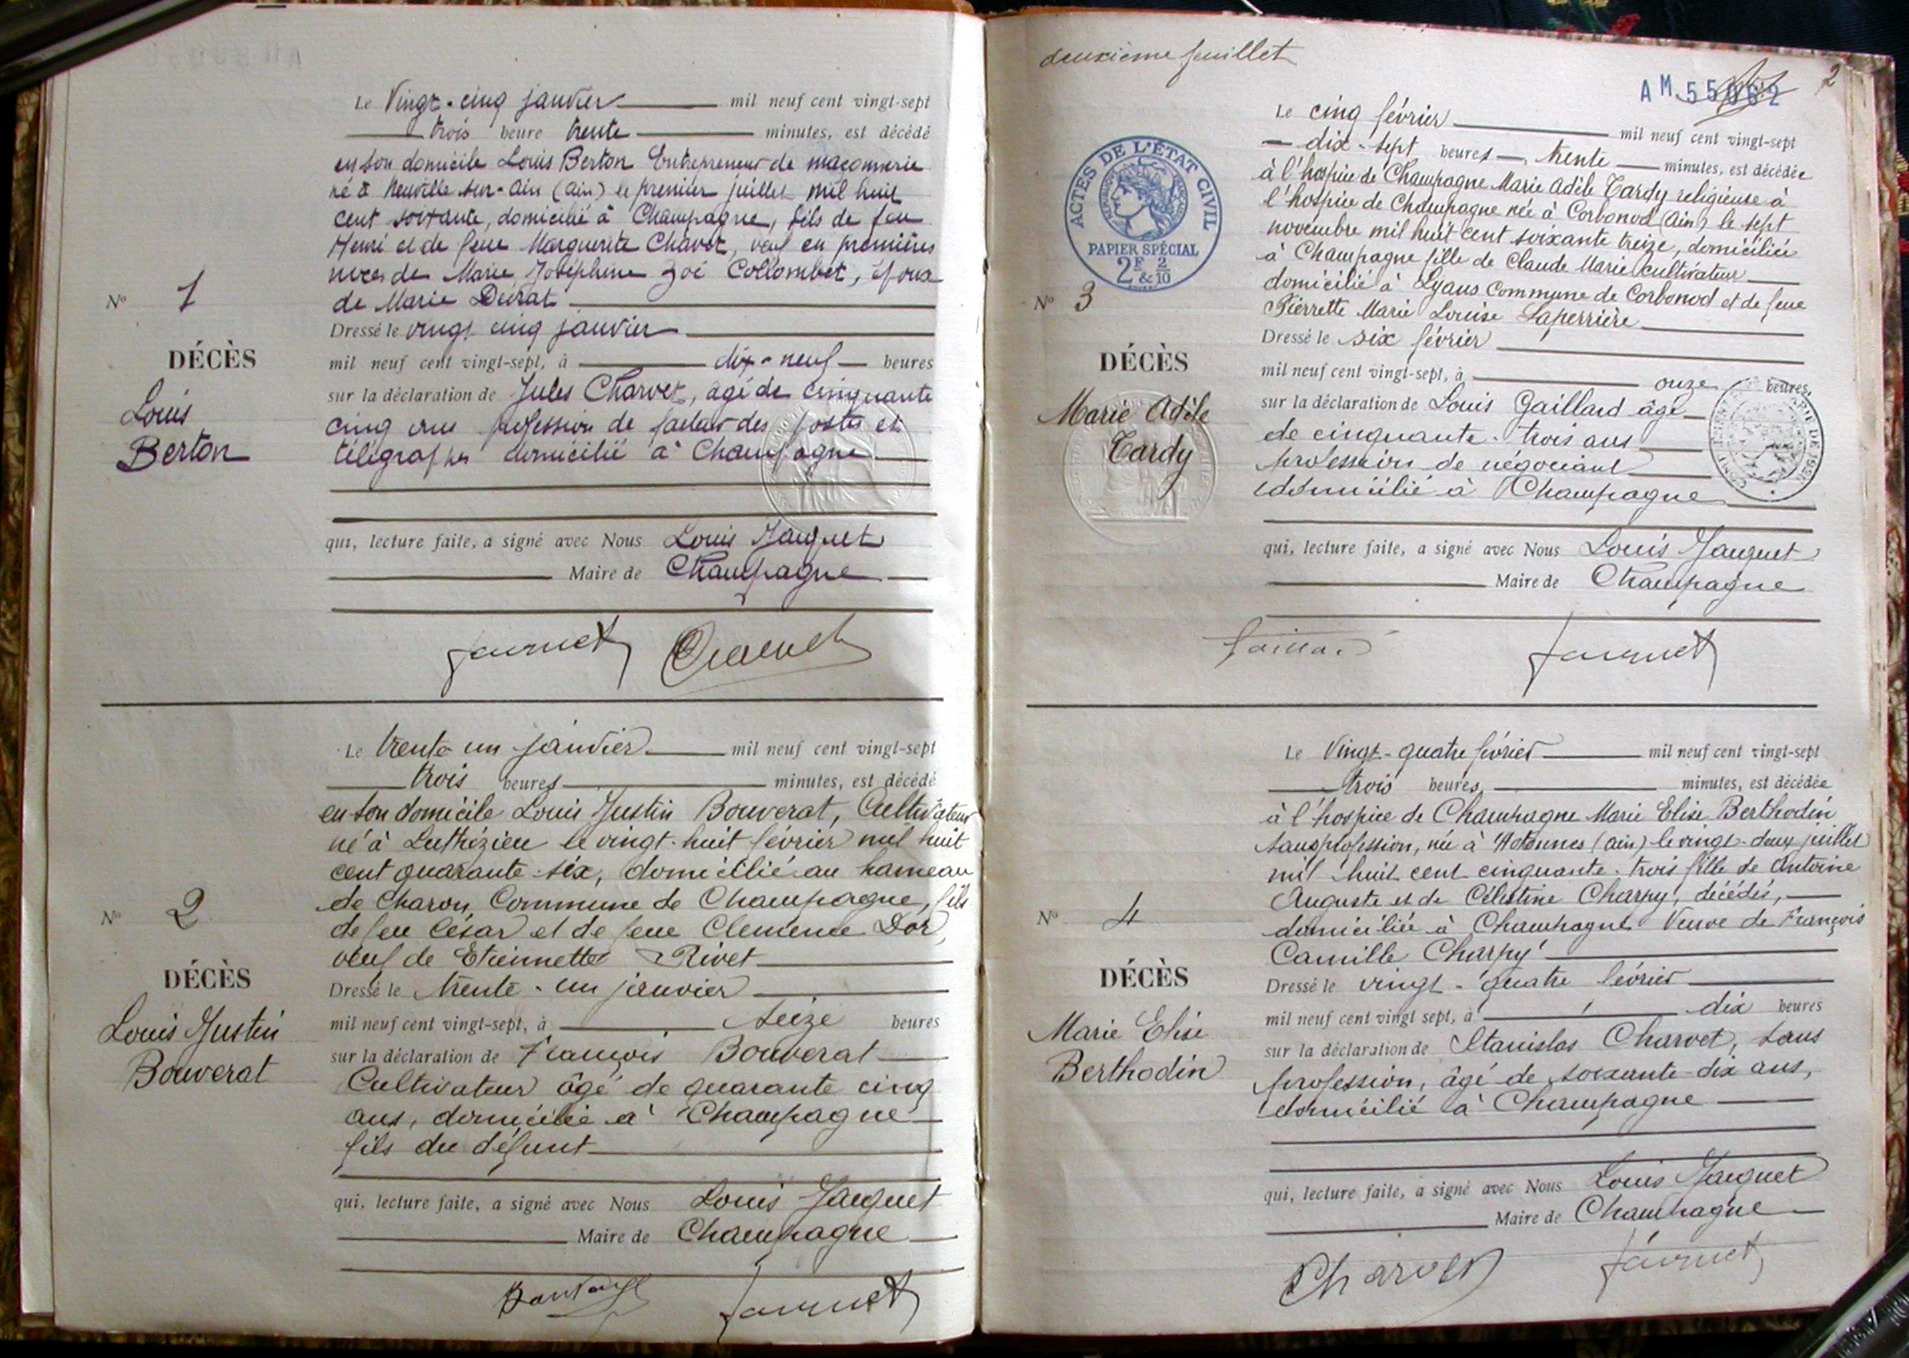 Le Vingt-cinq janvier mil neuf cent vingt-sept
trois heure trente minutes, est décédé
en son domicile Louis Berton Entrepreneur de maçonnerie
né à Neuville sur-Ain (Ain) le premier juillet mil huit
cent soixante, domicilié à Champagne, fils de feu
Henri et de feue Marguerite Chavot, veuf en premières
noces de Marie Joséphine Zoé Collombet, époux
de Marie Durat
Dressé le vingt cinq janvier
mil neuf cent vingt-sept, à dix-neuf heures
sur la déclaration de Jules Charvet, âgé de cinquante
cinq ans profession de facteur des postes et
télégraphes domicilié à Champagne
qui, lecture faite, a signé avec Nous Louis Jauquet
Maire de Champagne
No 1
DÉCÈS
Louis
Berton
Le trente un janvier mil neuf cent vingt-sept
trois heures minutes, est décédé
en son domicile Louis Justin Bouverat, Cultivateur
né à Luthézieu le vingt-huit février mil huit
cent quarante-six, domicilié au hameau
de Charon Commune de Champagne, fils
de feu César et de feue Clemence Dor,
veuf de Etiennette Rivet
Dressé le trente-un janvier
mil neuf cent vingt-sept, à seize heures
sur la déclaration de François Bouverat
Cultivateur âgé de quarante cinq
ans, domicilié à Champagne
fils du défunt
qui, lecture faite, a signé avec Nous Louis Jauquet
Maire de Champagne
No 2
DÉCÈS
Louis Justin
Bouverat
deuxième feuillet
2
AM 55062
ACTES DE L'ÉTAT CIVIL
PAPIER SPÉCIAL
2F & 2/10
Le cinq février mil neuf cent vingt-sept
dix-sept heures trente minutes, est décédée
à l'hospice de Champagne Marie Adèle Tardy religieuse à
l'hospice de Champagne née à Corbonod (Ain) le sept
novembre mil huit cent soixante treize, domiciliée
à Champagne fille de Claude Marie cultivateur
domicilié à Gyans Commune de Corbonod et de feue
Pierrette Marie Louise Laperrière
Dressé le six février
mil neuf cent vingt-sept, à onze heures
sur la déclaration de Louis Gaillard âgé
de cinquante-trois ans
profession de négociant
domicilié à Champagne
qui, lecture faite, a signé avec Nous Louis Jauquet
Maire de Champagne
No 3
DÉCÈS
Marie Adèle
Tardy
Le Vingt-quatre février mil neuf cent vingt-sept
trois heures, minutes, est décédée
à l'hospice de Champagne Marie Elise Berthodin
sans profession, née à Hotonnes (Ain) le vingt-deux juillet
mil huit cent cinquante-trois fille de Antoine
Auguste et de Célestine Charpy, décédés,
domiciliée à Champagne Veuve de François
Camille Charpy
Dressé le vingt-quatre février
mil neuf cent vingt sept, à dix heures
sur la déclaration de Stanislas Charvet, sans
profession, âgé de soixante-dix ans,
domicilié à Champagne
qui, lecture faite, a signé avec Nous Louis Jauquet
Maire de Champagne
Charvet
No 4
DÉCÈS
Marie Elise
Berthodin